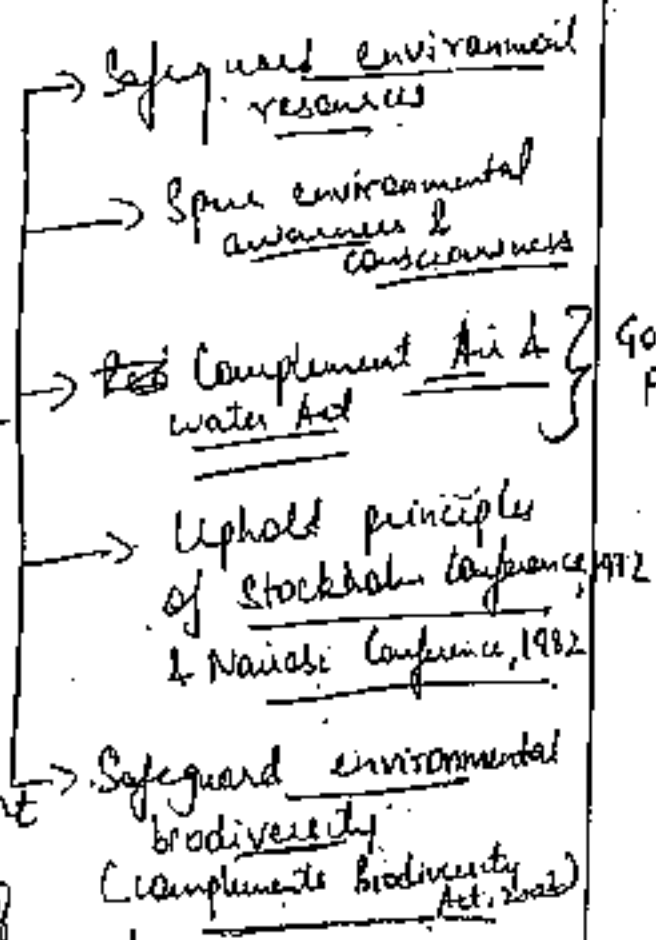 Safeguard environmental
resources
Spur environmental
awareness &
consciousness
Complement Air &
water Act
Go
Uphold principles
of Stockholm Conference, 1972
& Nairobi Conference, 1982
Safeguard environmental
biodiversity
(complements Biodiversity
Act, 2002)